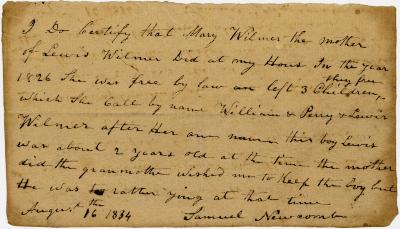 I Do Certify that Mary Wilmer the mother
of Lewis Wilmer Did at my Hous In the year
1826 She was free by law an left 3 Children, they free
which She Call by name William & Perry & Lewis
Wilmer after Her own name this boy Lewis
was about 2 years old at the time the mother
did the granmothe wished me to Keep the boy but
he was to rather yong at that time
August the 16 1834 Samuel Newcomb